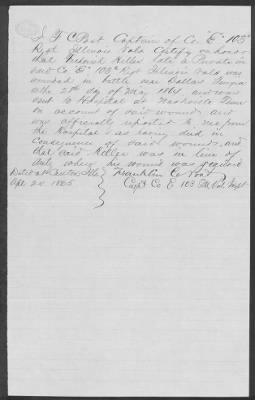 I F C Post Captain of Co "E" 103"
Regt Illinois Vols Certify on honor
that Richard Keller late a Private in
said Co "E" 103" Regt Illinois Vols was
wounded in battle near Dallas Georgia
the 28th day of May 1864 and was
sent to Hospital at Nashville Tenn
on account of said wounds and
was officially reported to me from
the Hospital as having died in
consequence of said wounds, and
that said Keller was in line of
duty when his wound was received
Dated at Canton Ills
Franklin C Post
Apl 20 1865
Capt Co E 103 Ill Vol Inft